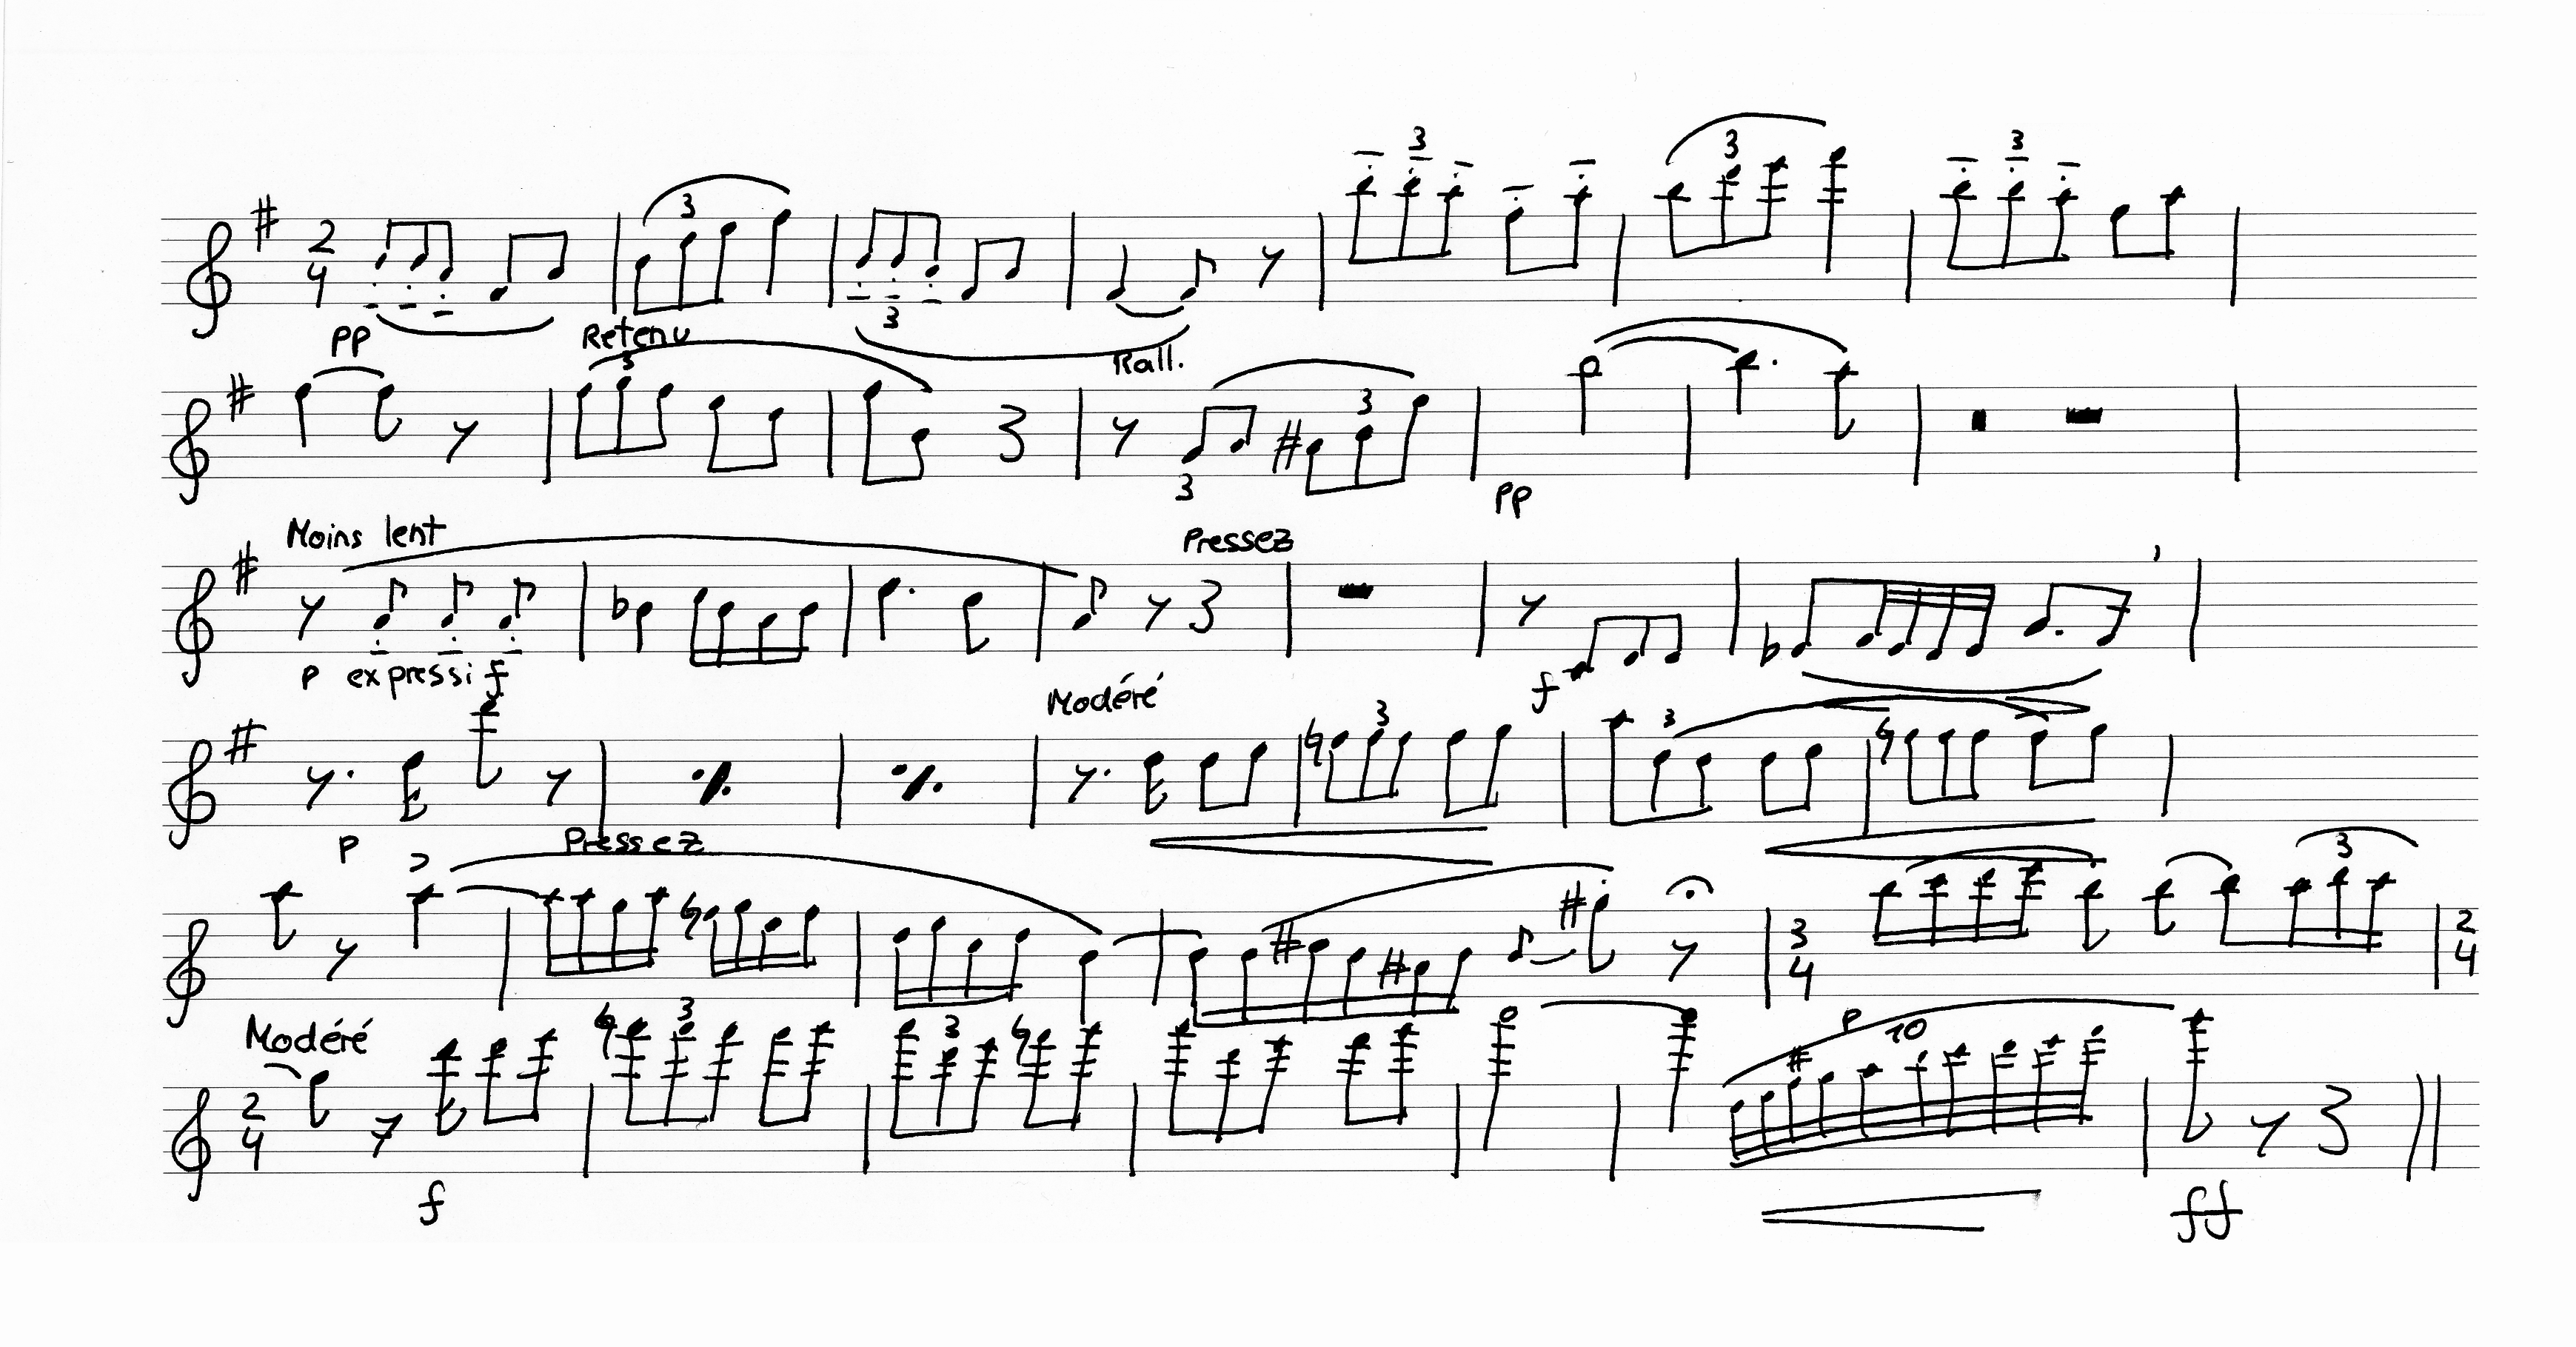 3 3
3
2
4
3
pp Retenu Rall.
3
3
3
pp
Moins lent Pressez
p expressif f
Modéré
3 3
p Pressez
3
3
4
2
4
Modéré 3 3 p 10
2
4
f ff